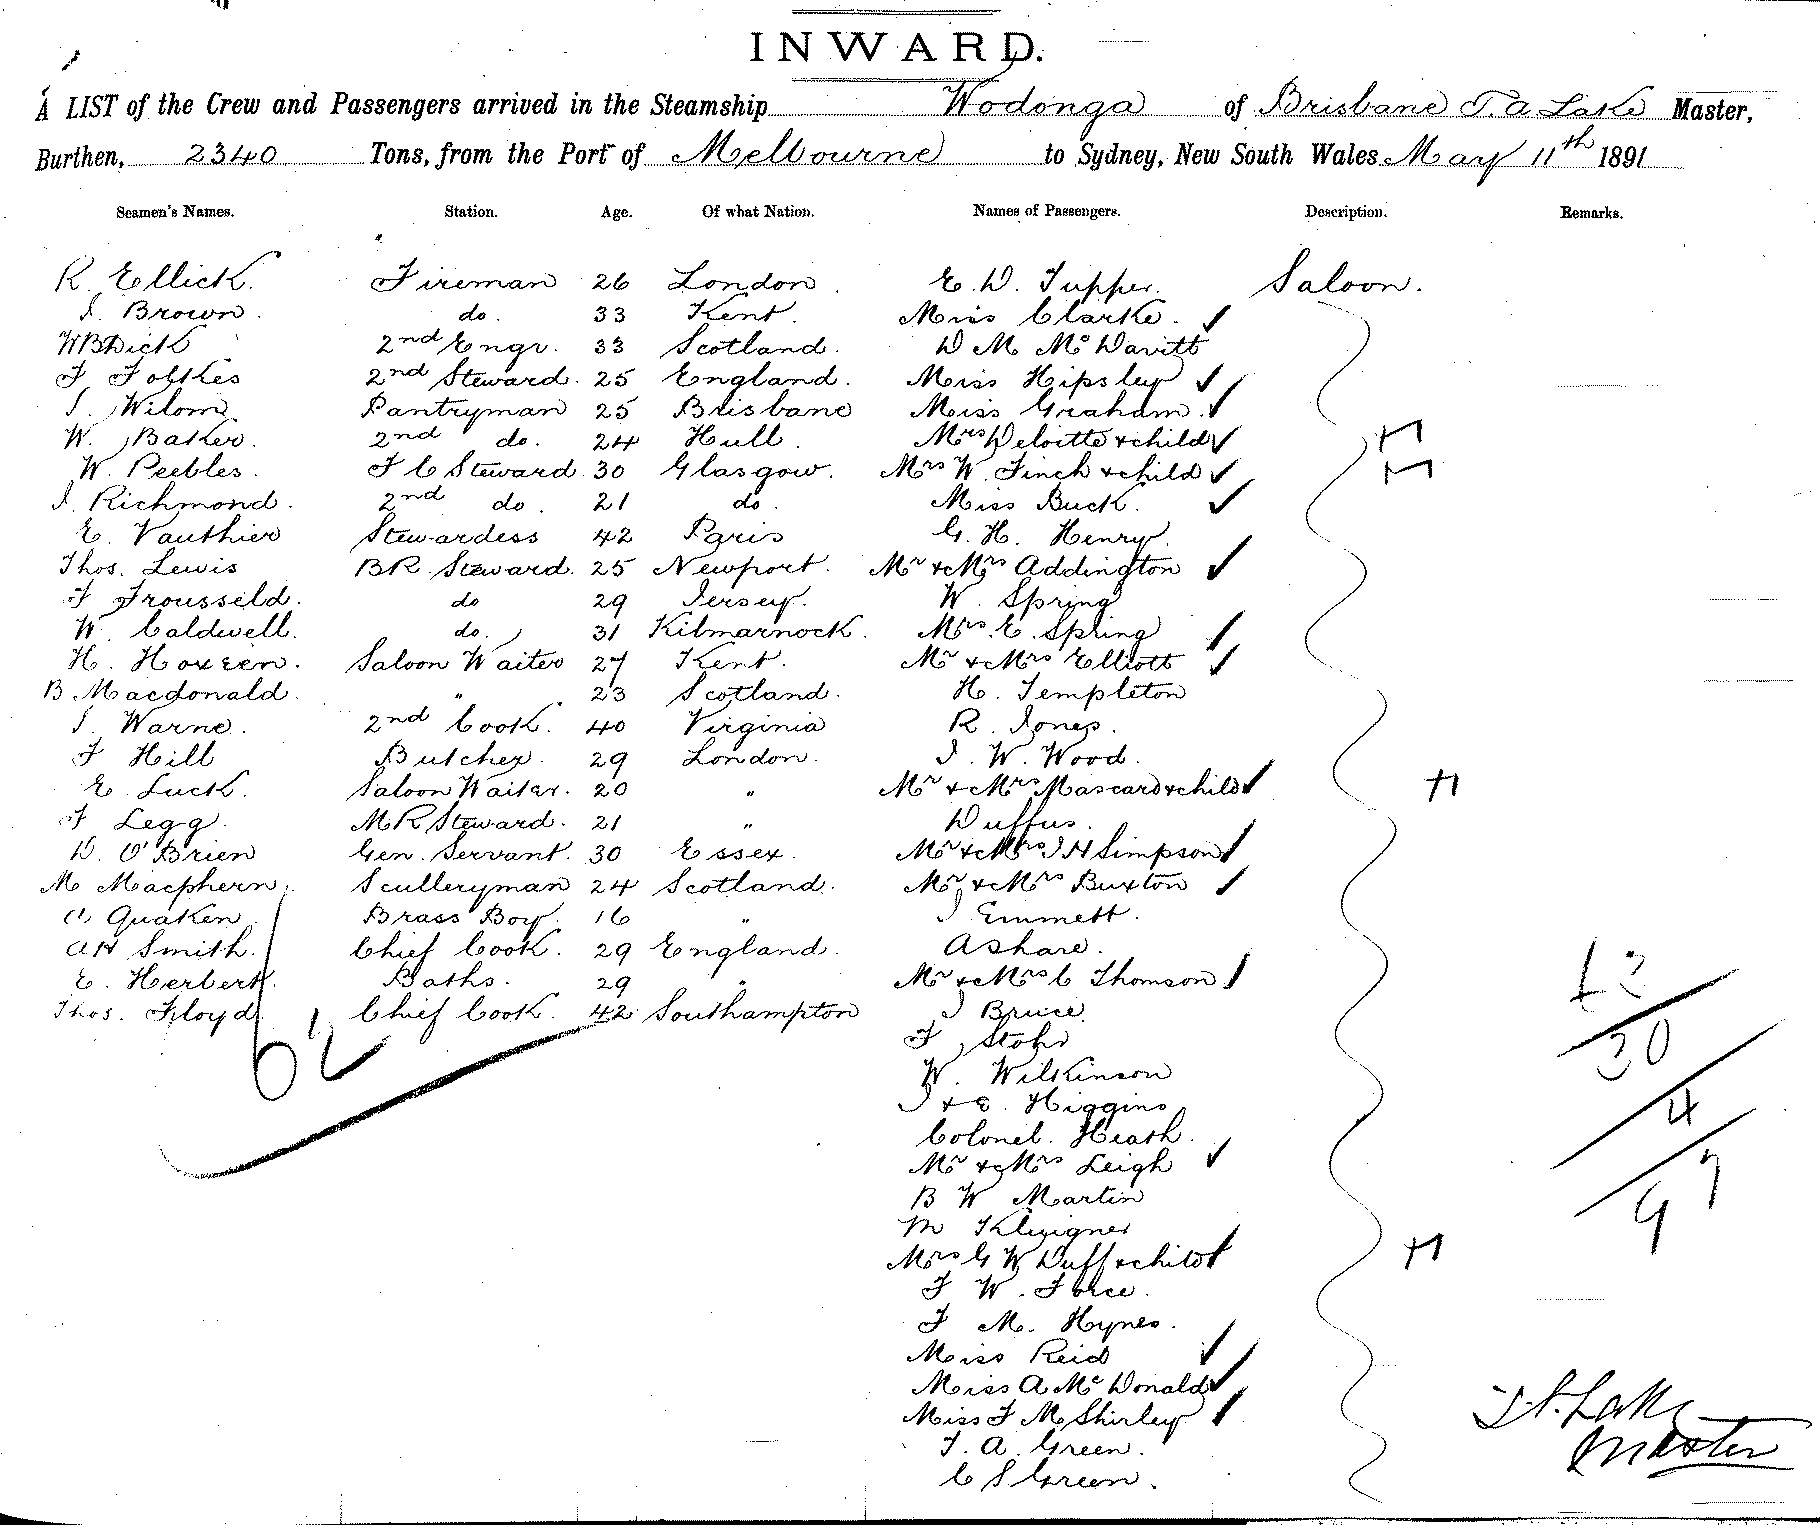 INWARD.
A LIST of the Crew and Passengers arrived in the Steamship Wodonga of Brisbane T. A Lake Master,
Burthen, 2340 Tons, from the Port of Melbourne to Sydney, New South Wales May 11th 1891
Seamen's Names. Station. Age. Of what Nation. Names of Passengers. Description. Remarks.
R. Ellick. Fireman 26 London. E. D. Tupper. Saloon.
J. Brown. do. 33 Kent. Miss Clarke.
W B Dick 2nd Engr. 33 Scotland. D M McDavitt
F Folkes 2nd Steward. 25 England. Miss Hipsley
J. Wilom Pantryman 25 Brisbane Miss Graham.
W. Baker. 2nd do. 24 Hull. Mrs Deloitte & child
W. Peebles. F C Steward 30 Glasgow. Mrs W. Finch & child
J. Richmond. 2nd do. 21 do. Miss Buck.
E. Vauthier Stewardess 42 Paris G. H. Henry.
Thos. Lewis BR. Steward. 25 Newport. Mr & Mrs Addington
F Frousseld. do 29 Jersey. W. Spring
W. Caldwell. do. 31 Kilmarnock. Mrs. E. Spring
H. Hoxeen. Saloon Waiter 27 Kent. Mr & Mrs Elliott
B. Macdonald. " 23 Scotland. H. Templeton
J. Warne. 2nd Cook. 40 Virginia R. Jones.
F Hill Butcher. 29 London. J. W. Wood.
E. Luck. Saloon Waiter. 20 " Mr & Mrs Mascard & child
F Legg. MR Steward. 21 " Duffus.
D. O'Brien Gen. Servant. 30 Essex. Mr & Mrs J H Simpson
M Macphern. Sculleryman 24 Scotland. Mr & Mrs Buxton
Quaken Brass Boy. 16 " J Emmett.
AH Smith. Chief Cook. 29 England. Ashare.
E. Herbert. Baths. 29 " Mr & Mrs C Thomson
Thos. Floyd Chief Cook. 42 Southampton J Bruce.
F Stohr
W. Wilkinson
J & E. Higgins
Colonel. Heath.
Mr & Mrs Leigh
B W Martin
M
Mrs G W Duff & child
F W. Force.
F M. Hynes.
Miss Reid
Miss A McDonald
Miss F M Shirley
T. A. Green.
C S Green.
62
30
4
97
T. A. Lake
Master